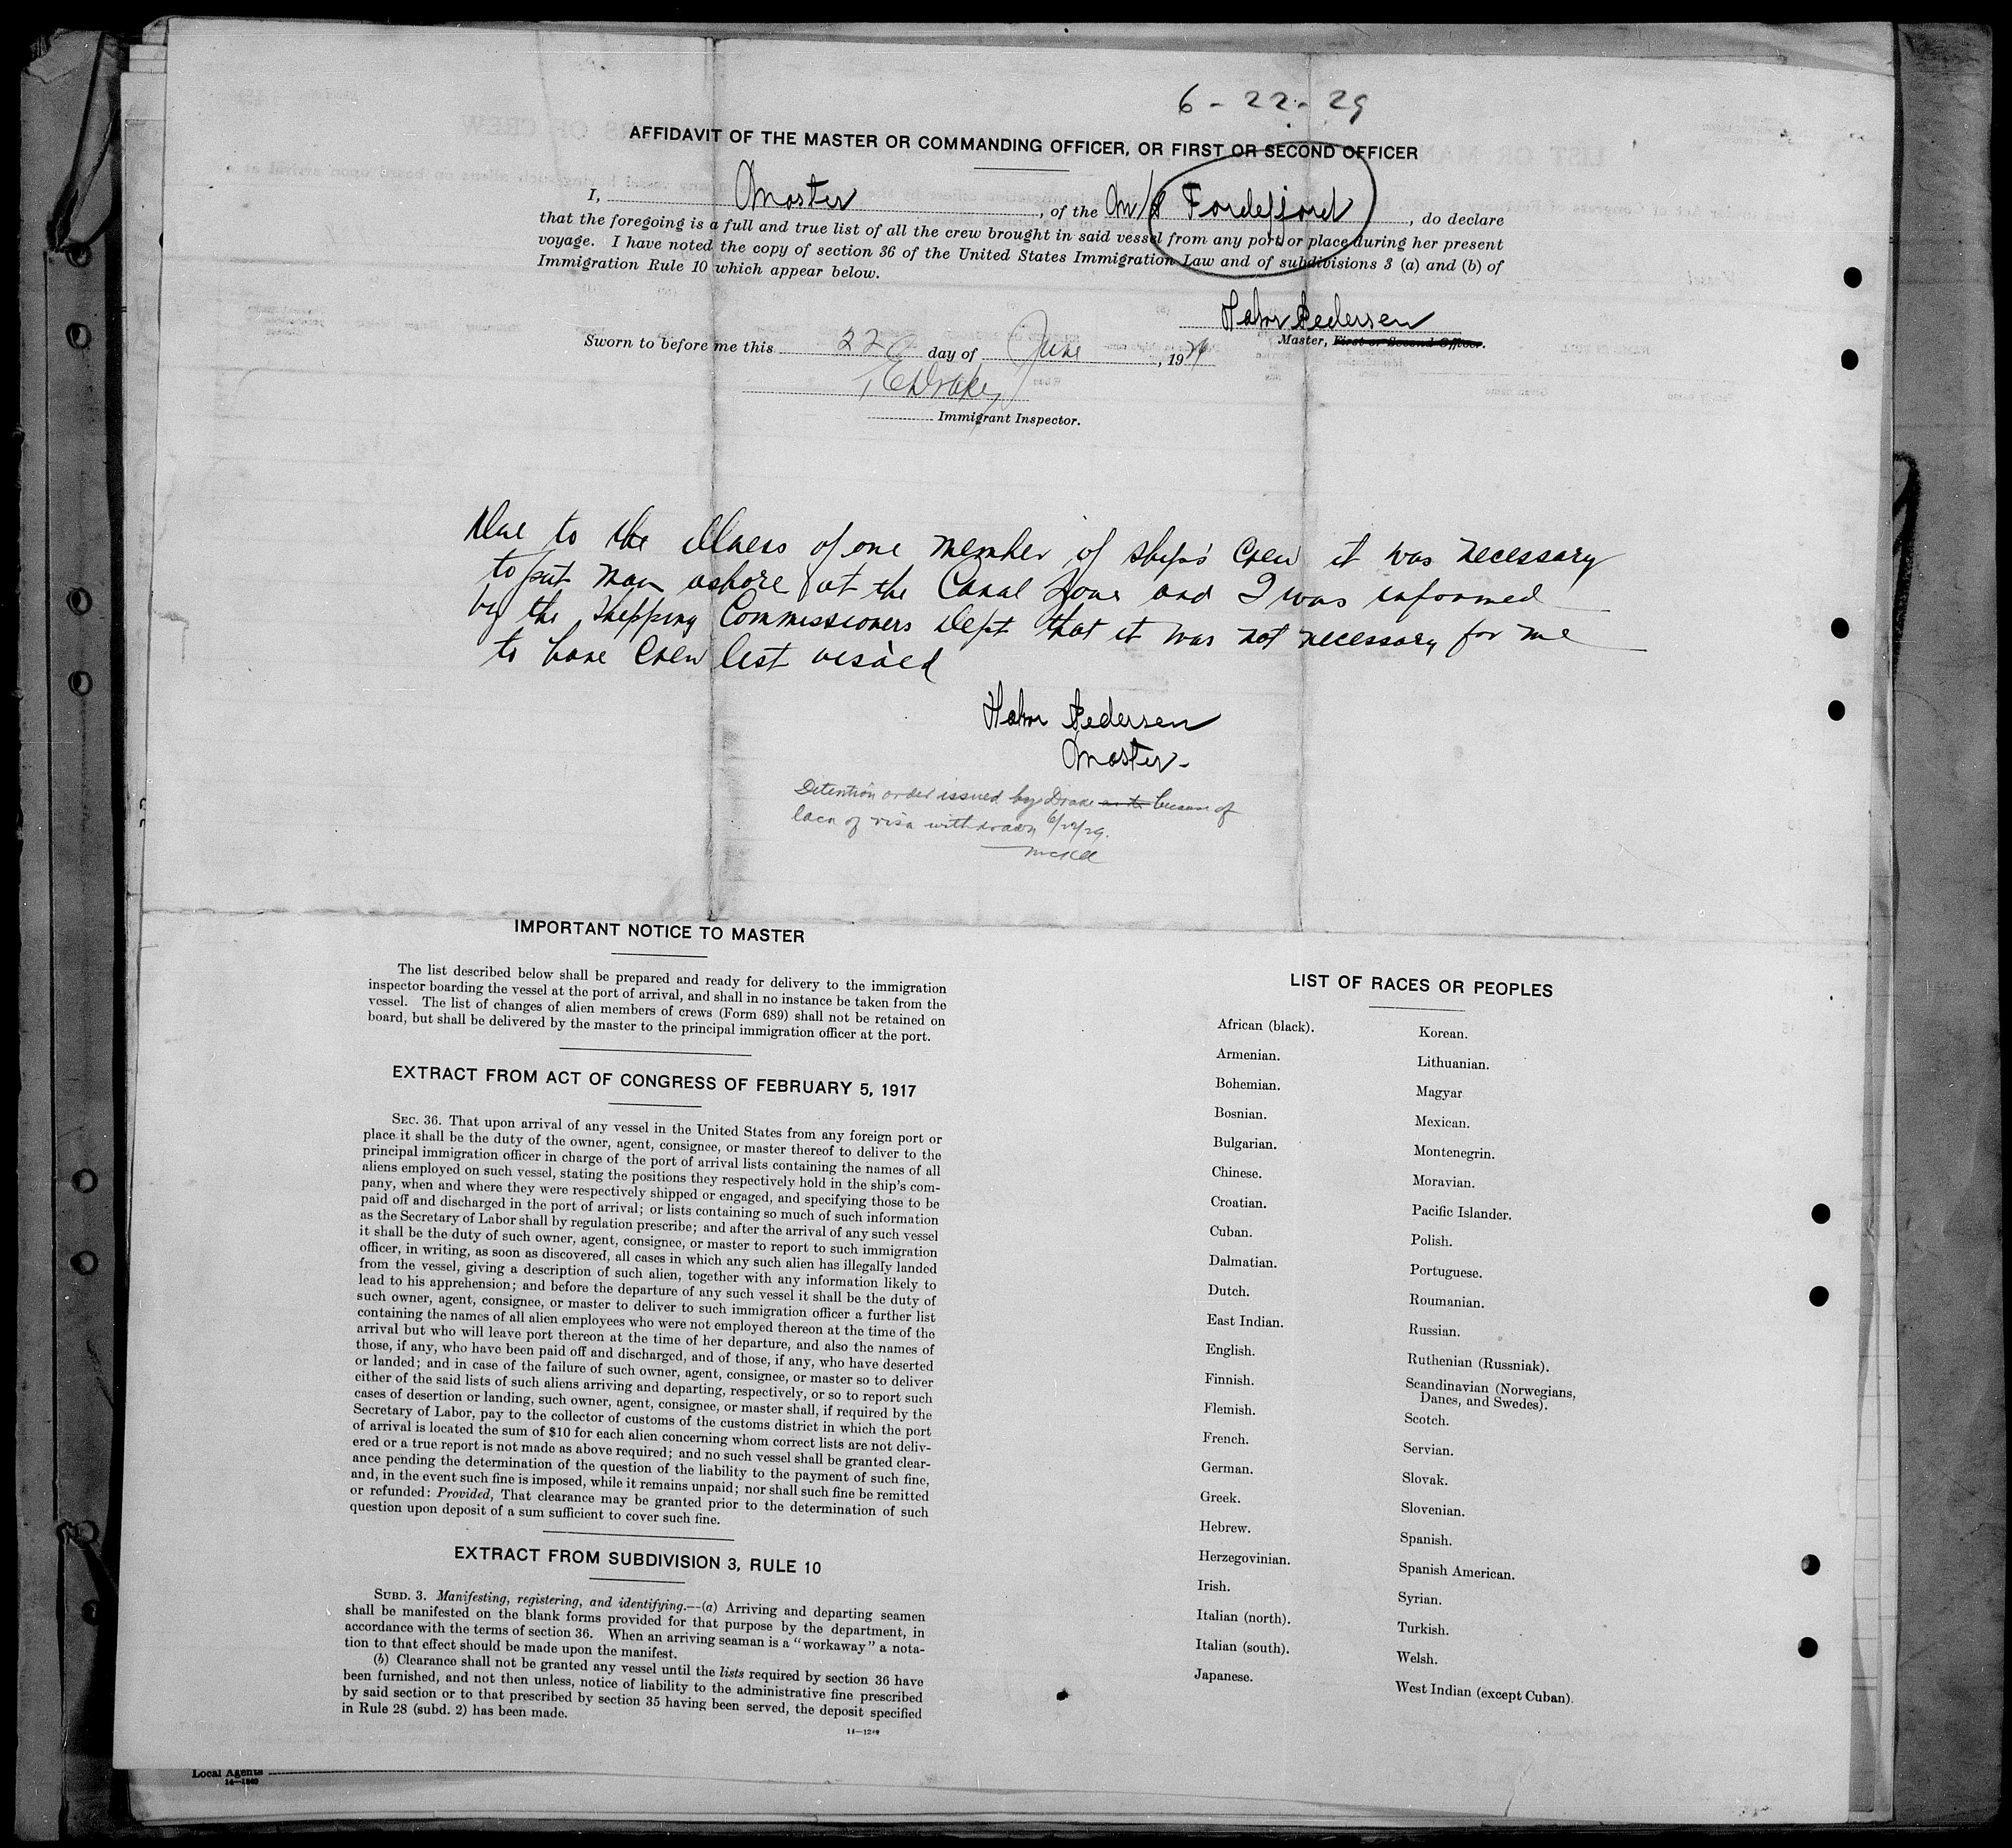 6 - 22 - 29
AFFIDAVIT OF THE MASTER OR COMMANDING OFFICER, OR FIRST OR SECOND OFFICER
I, Master, of the M/S Fordefjord, do declare
that the foregoing is a full and true list of all the crew brought in said vessel from any port or place during her present
voyage. I have noted the copy of section 36 of the United States Immigration Law and of subdivisions 3 (a) and (b) of
Immigration Rule 10 which appear below.
Pedersen
Master, First or Second Officer.
Sworn to before me this 22 day of June, 1929
Drake
Immigrant Inspector.
Due to the illness of one member of ship's crew it was necessary
to put man ashore at the Canal Zone and I was informed
by the Shipping Commissioners Dept that it was not necessary for me
to have crew list visaed
Pedersen
Master -
Detention order issued by Drake as to because of
lack of visa withdrawn 6/22/29.
IMPORTANT NOTICE TO MASTER
The list described below shall be prepared and ready for delivery to the immigration
inspector boarding the vessel at the port of arrival, and shall in no instance be taken from the
vessel. The list of changes of alien members of crews (Form 689) shall not be retained on
board, but shall be delivered by the master to the principal immigration officer at the port.
EXTRACT FROM ACT OF CONGRESS OF FEBRUARY 5, 1917
SEC. 36. That upon arrival of any vessel in the United States from any foreign port or
place it shall be the duty of the owner, agent, consignee, or master thereof to deliver to the
principal immigration officer in charge of the port of arrival lists containing the names of all
aliens employed on such vessel, stating the positions they respectively hold in the ship's com-
pany, when and where they were respectively shipped or engaged, and specifying those to be
paid off and discharged in the port of arrival; or lists containing so much of such information
as the Secretary of Labor shall by regulation prescribe; and after the arrival of any such vessel
it shall be the duty of such owner, agent, consignee, or master to report to such immigration
officer, in writing, as soon as discovered, all cases in which any such alien has illegally landed
from the vessel, giving a description of such alien, together with any information likely to
lead to his apprehension; and before the departure of any such vessel it shall be the duty of
such owner, agent, consignee, or master to deliver to such immigration officer a further list
containing the names of all alien employees who were not employed thereon at the time of the
arrival but who will leave port thereon at the time of her departure, and also the names of
those, if any, who have been paid off and discharged, and of those, if any, who have deserted
or landed; and in case of the failure of such owner, agent, consignee, or master so to deliver
either of the said lists of such aliens arriving and departing, respectively, or so to report such
cases of desertion or landing, such owner, agent, consignee, or master shall, if required by the
Secretary of Labor, pay to the collector of customs of the customs district in which the port
of arrival is located the sum of $10 for each alien concerning whom correct lists are not deliv-
ered or a true report is not made as above required; and no such vessel shall be granted clear-
ance pending the determination of the question of the liability to the payment of such fine,
and, in the event such fine is imposed, while it remains unpaid; nor shall such fine be remitted
or refunded: Provided, That clearance may be granted prior to the determination of such
question upon deposit of a sum sufficient to cover such fine.
EXTRACT FROM SUBDIVISION 3, RULE 10
SUBD. 3. Manifesting, registering, and identifying.—(a) Arriving and departing seamen
shall be manifested on the blank forms provided for that purpose by the department, in
accordance with the terms of section 36. When an arriving seaman is a "workaway" a nota-
tion to that effect should be made upon the manifest.
(b) Clearance shall not be granted any vessel until the lists required by section 36 have
been furnished, and not then unless, notice of liability to the administrative fine prescribed
by said section or to that prescribed by section 35 having been served, the deposit specified
in Rule 28 (subd. 2) has been made.
LIST OF RACES OR PEOPLES
African (black).
Armenian.
Bohemian.
Bosnian.
Bulgarian.
Chinese.
Croatian.
Cuban.
Dalmatian.
Dutch.
East Indian.
English.
Finnish.
Flemish.
French.
German.
Greek.
Hebrew.
Herzegovinian.
Irish.
Italian (north).
Italian (south).
Japanese.
Korean.
Lithuanian.
Magyar
Mexican.
Montenegrin.
Moravian.
Pacific Islander.
Polish.
Portuguese.
Roumanian.
Russian.
Ruthenian (Russniak).
Scandinavian (Norwegians,
Danes, and Swedes).
Scotch.
Servian.
Slovak.
Slovenian.
Spanish.
Spanish American.
Syrian.
Turkish.
Welsh.
West Indian (except Cuban).
Local Agents